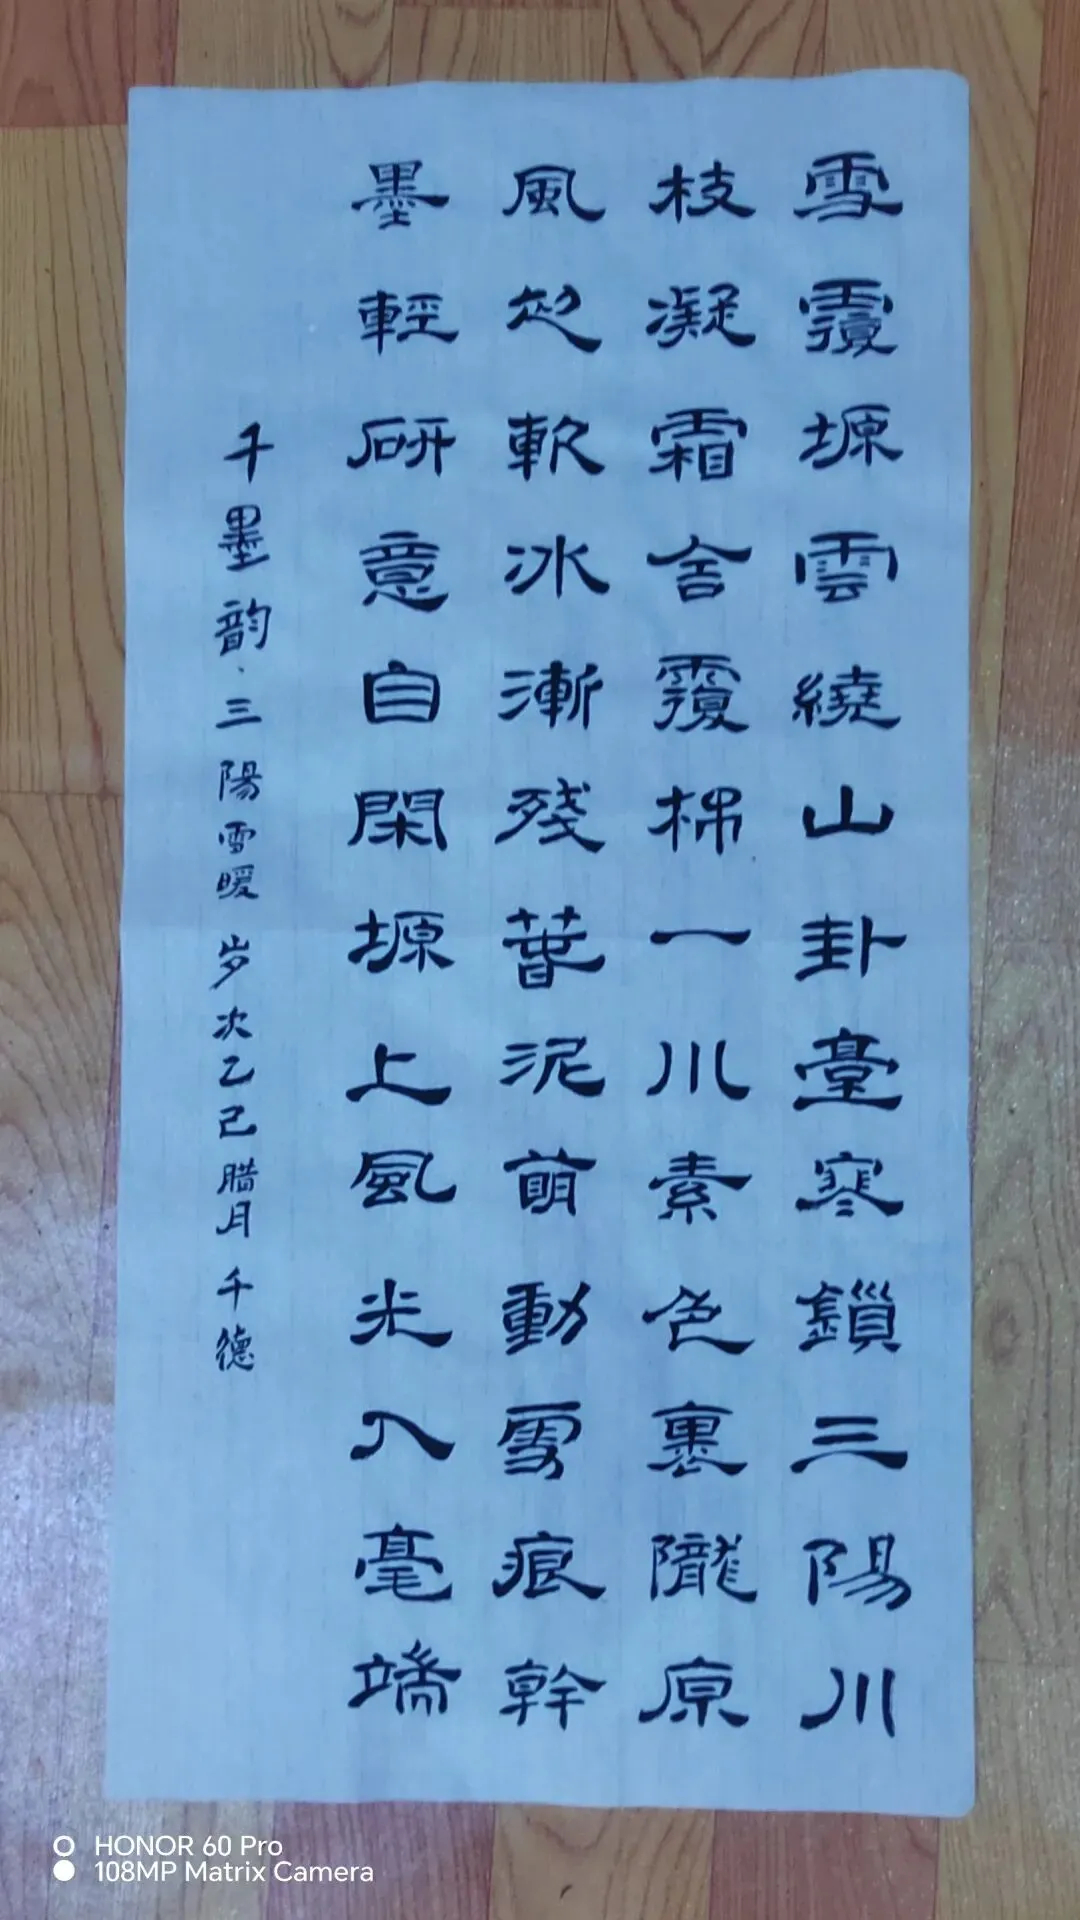 雪覆塬雲繞山卦臺寒鎖三陽川
枝凝霜舍覆棉一川素色裹隴原
風起軟冰漸殘葉泥萌動雪痕幹
墨輕研意自閑塬上風光入毫端
千墨韵、三陽雪暖 岁次乙巳腊月 千德
HONOR 60 Pro
108MP Matrix Camera